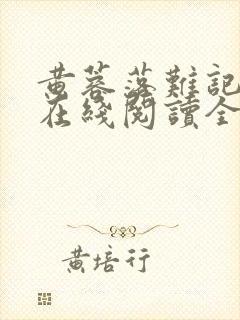 黄蓉落难記
在綫閱讀全
黄培行